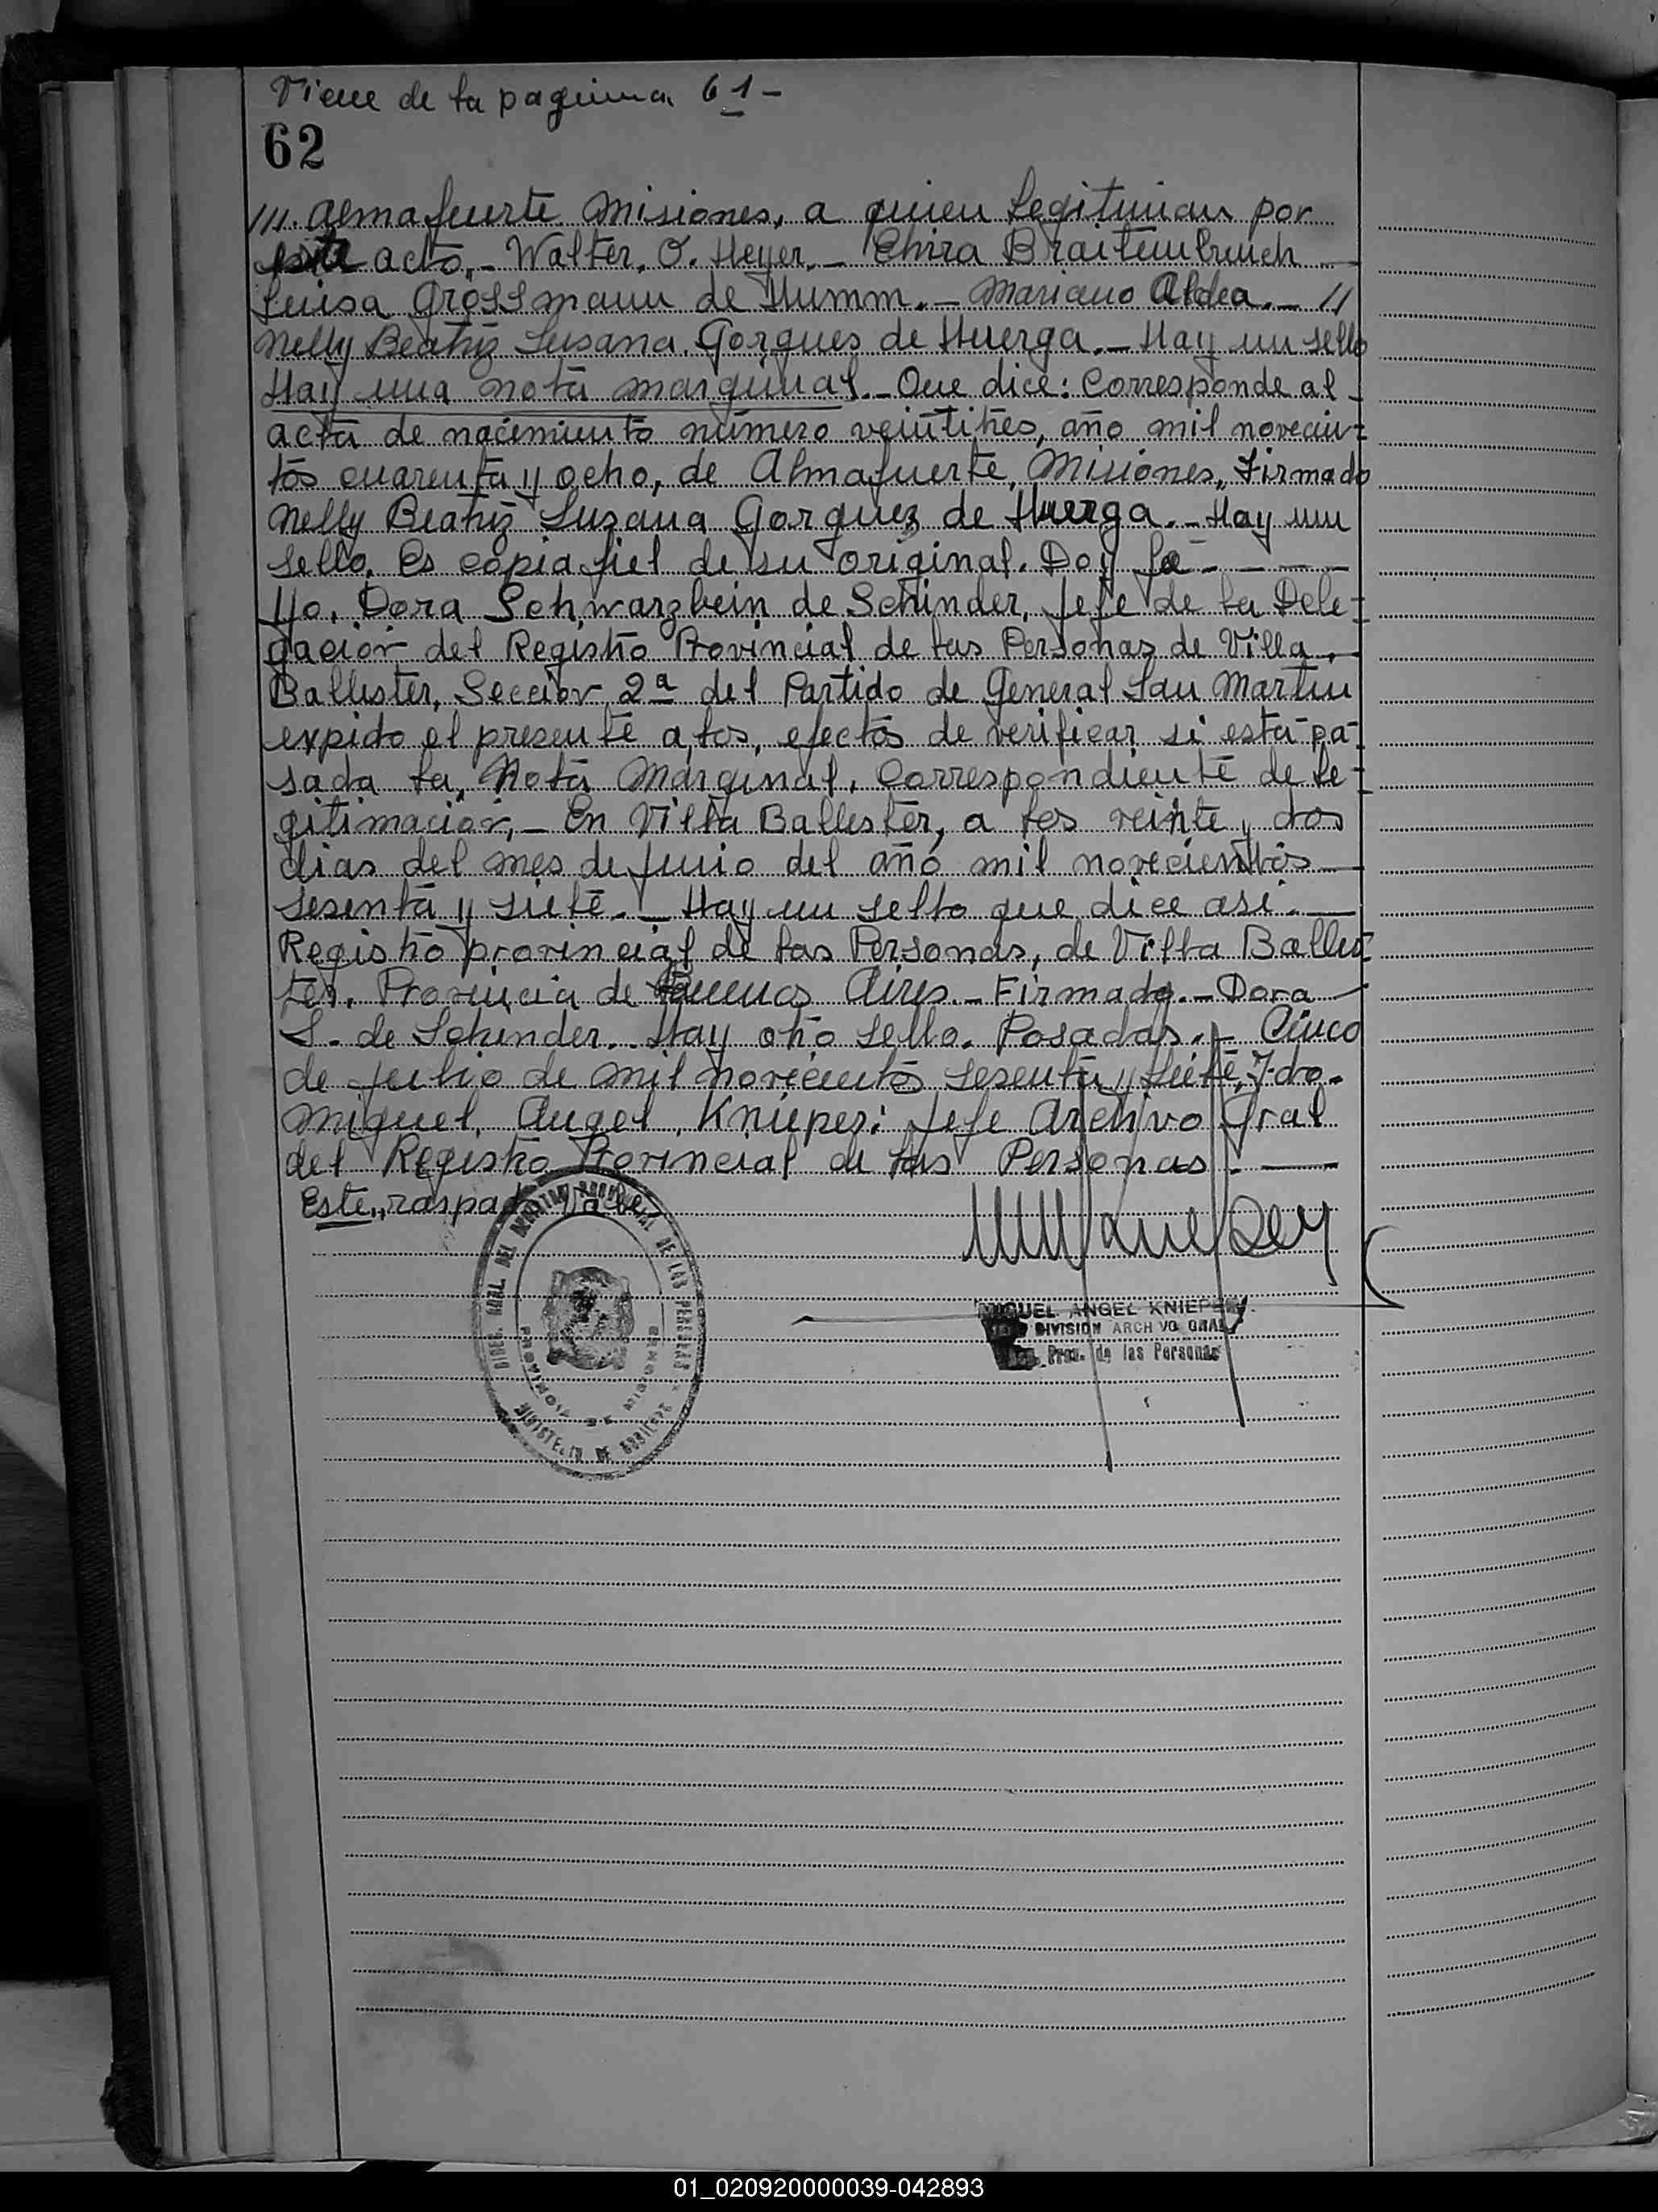 Viene de la pagina 61-
62
///. Almafuerte Misiones, a quien Legitiman por
este acto,- Walter. O. Heyer.- Elvira Braitembruch
Luisa Grossmann de Humm.- Mariano Aldea.- //
Nelly Beatriz Susana. Gorques de Huerga.- Hay un sello
Hay una nota marginal.- Que dice: Corresponde al
acta de nacimiento número veintitres, año mil novecien-
tos cuarenta y ocho, de Almafuerte, Misiones,, Firmado
Nelly Beatriz Susana Gorquez de Huerga.- Hay un
sello. Es copia fiel de su original. Doy fe - - - -
Yo. Dora Schwarzbein de Schinder, Jefe de la Dele-
gación del Registro Provincial de las Personas de Villa,
Ballester, Sección 2ª del Partido de General San Martin
expido el presente a los, efectos de verificar si esta pa-
sada la, Nota Marginal, Correspondiente de le-
gitimación,- En Villa Ballester, a los veinte y dos
dias del mes de Junio del año mil novecientos
sesenta y siete.- Hay un sello que dice asi.-
Registro provincial de las Personas, de Villa Balles-
ter. Provincia de Buenos Aires.- Firmado.- Dora
S. de Schinder. Hay otro sello. Posadas.- Cinco
de Julio de mil novecientos sesenta y siete, Fdo.
Miguel, Angel, Knieper: Jefe Archivo Gral
del Registro Provincial de las Personas.-
Este,, raspado Vale-
MIGUEL ANGEL KNIEPER
DIVISION ARCHIVO GRAL
Prov. de las Personas
DIREC. GRAL. DEL REGISTRO PROVINCIAL DE LAS PERSONAS
PROVINCIA DE MISIONES
MINISTERIO DE GOBIERNO
01_020920000039-042893